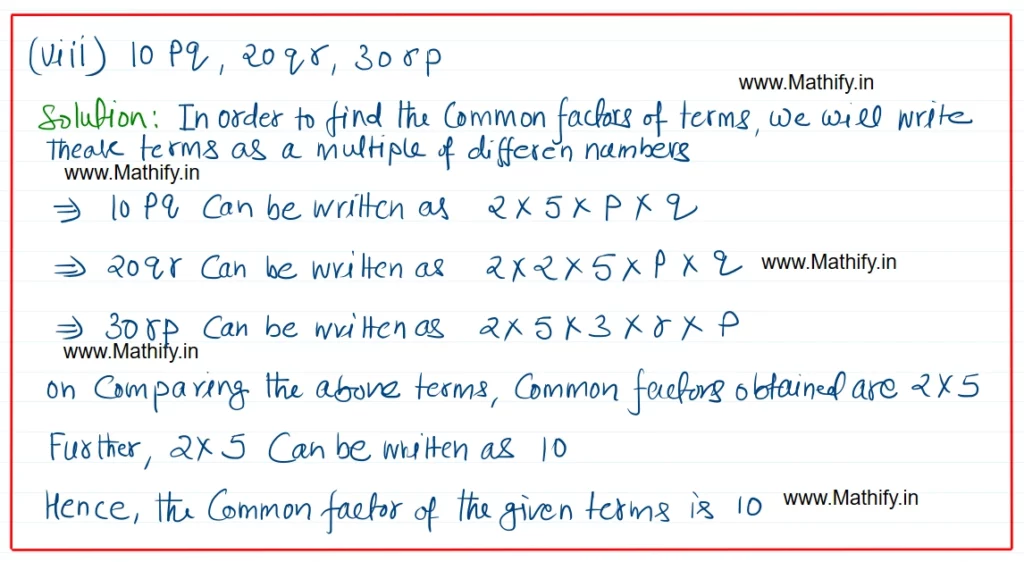 (viii) 10 pq, 20qr, 30 rp
www.Mathify.in
Solution: In order to find the Common factors of terms, we will write
theale terms as a multiple of differen numbers
www.Mathify.in
⇒ 10 pq Can be written as 2 × 5 × p × q
⇒ 20qr Can be written as 2 × 2 × 5 × p × q www.Mathify.in
⇒ 30 rp Can be written as 2 × 5 × 3 × r × p
www.Mathify.in
on Comparing the above terms, Common factors obtained are 2 × 5
Further, 2 × 5 Can be written as 10
Hence, the Common factor of the given terms is 10 www.Mathify.in